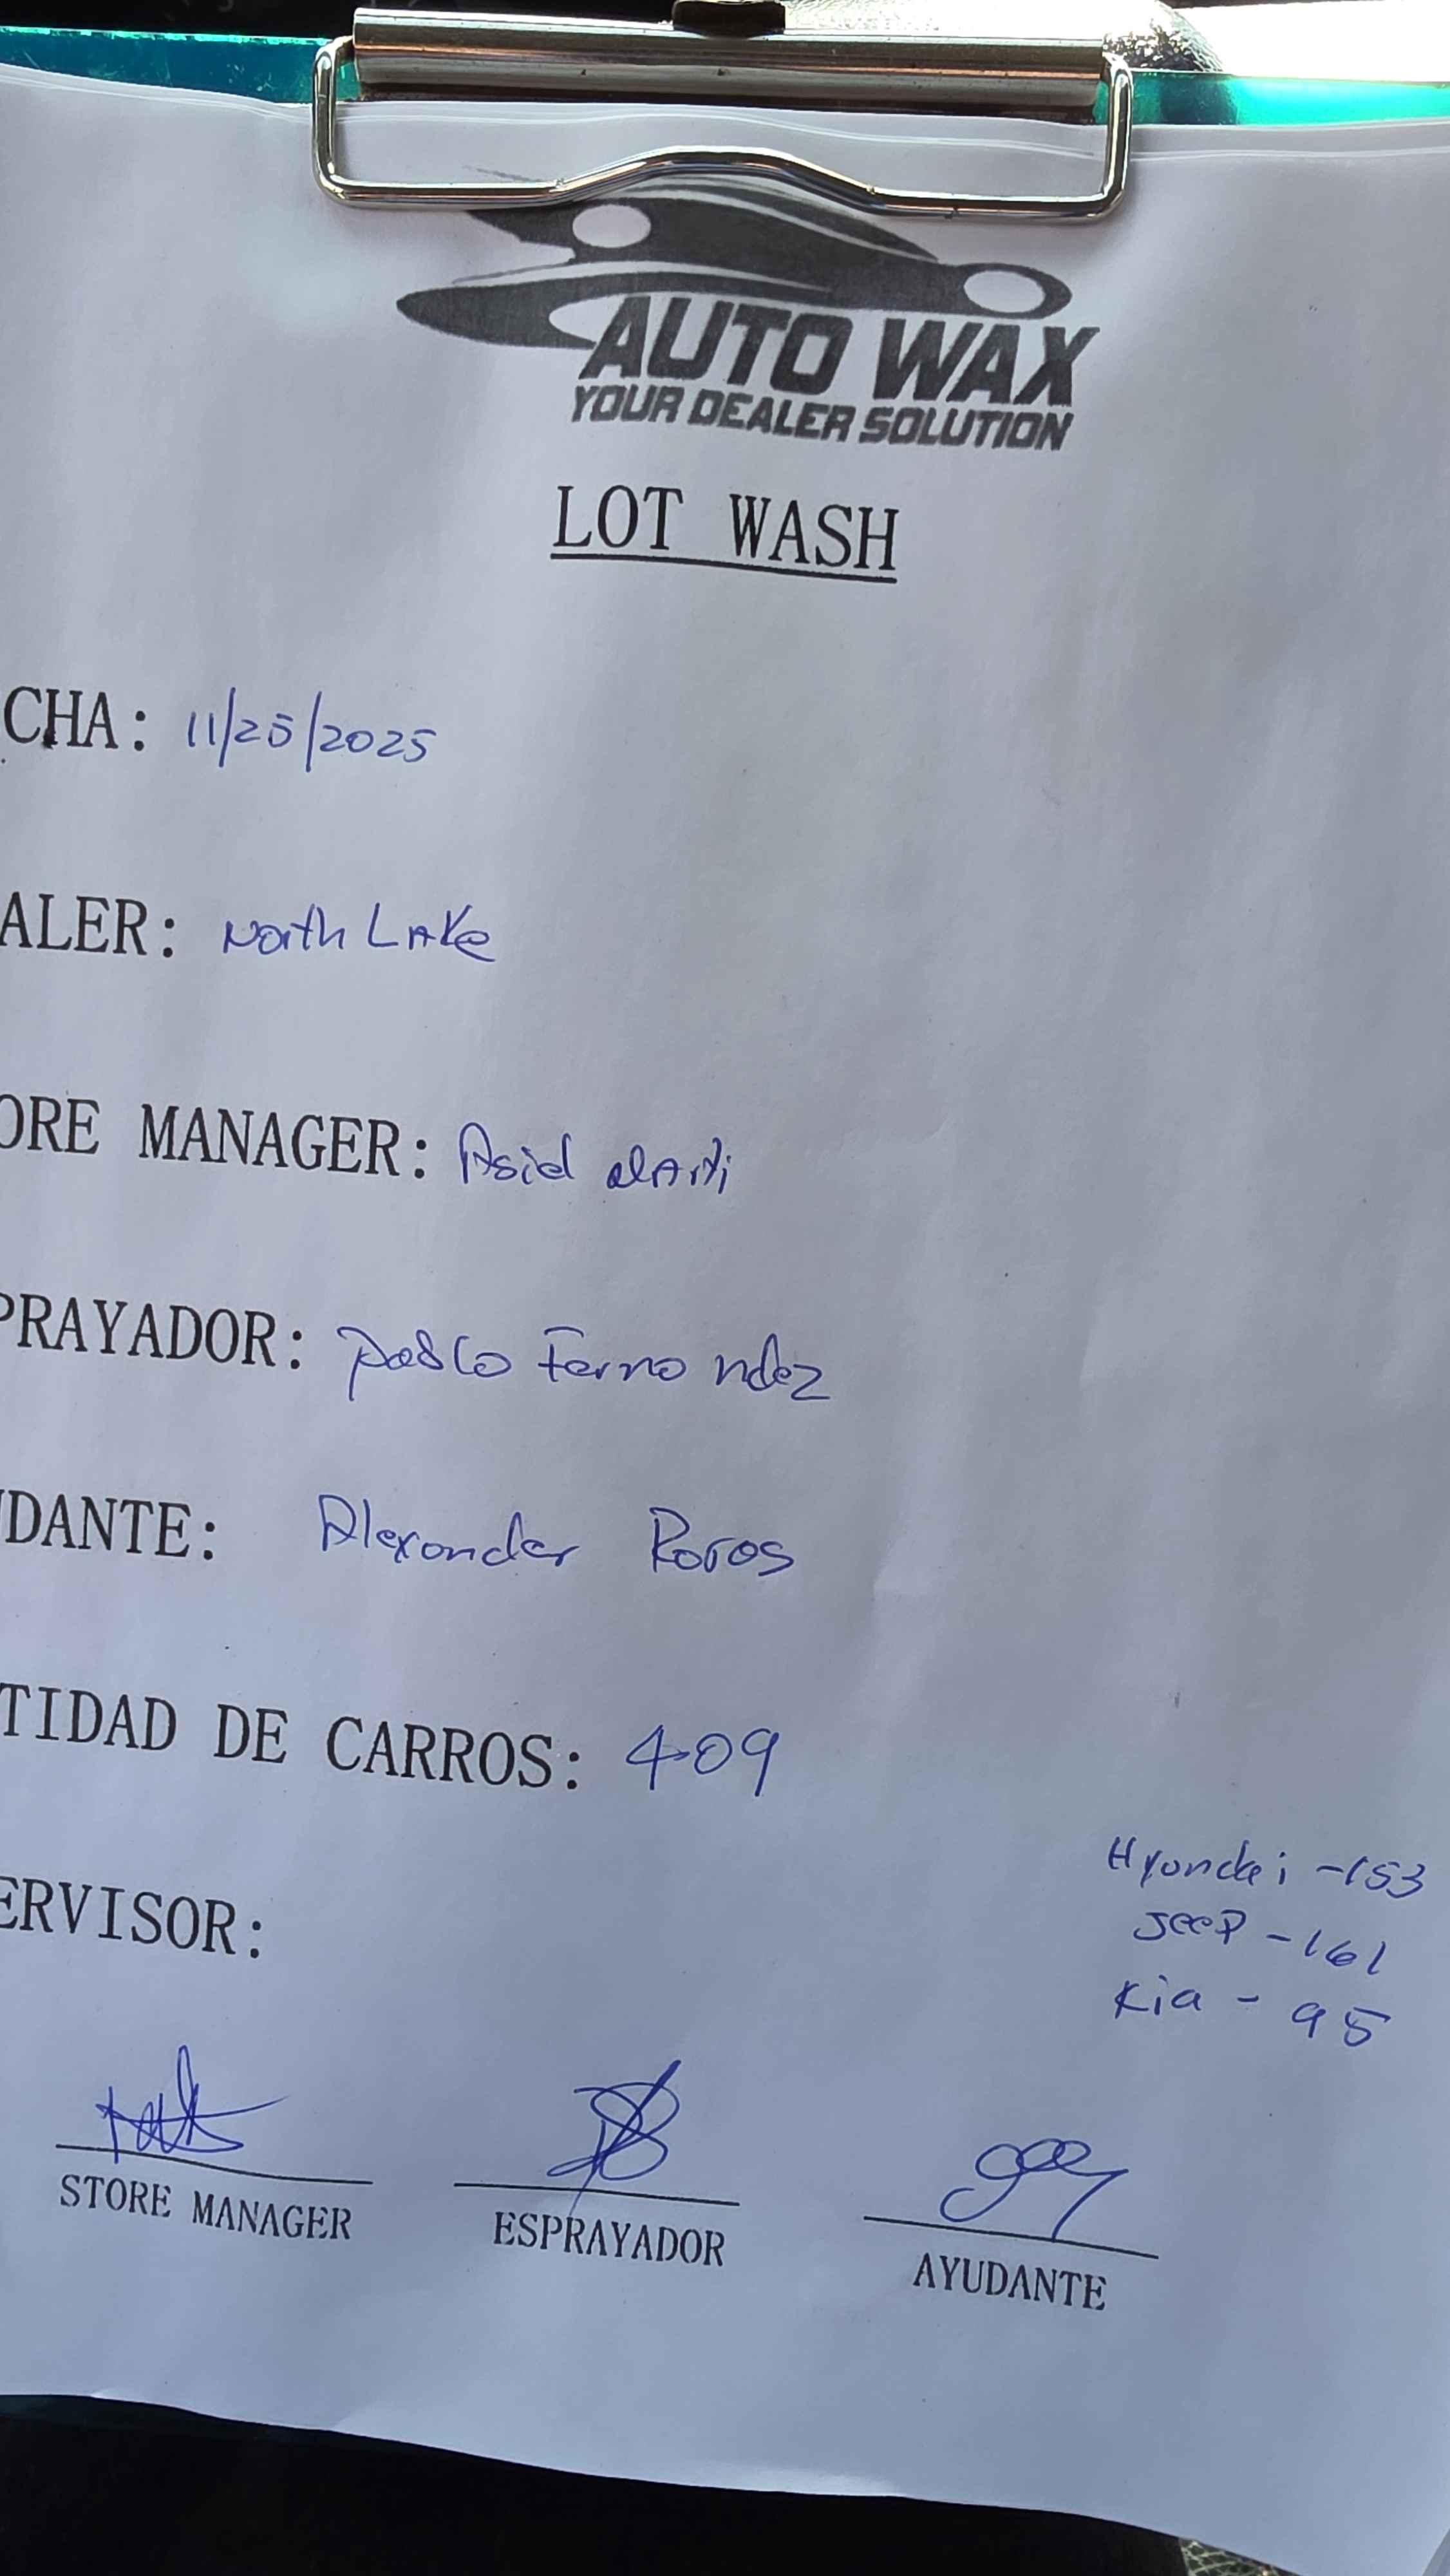 AUTO WAX
YOUR DEALER SOLUTION
LOT WASH
CHA: 11/25/2025
ALER: North Lake
ORE MANAGER: Asid
PRAYADOR: Pablo Fernandez
UDANTE: Alexander
TIDAD DE CARROS: 409
Hyundai -153
ERVISOR:
Jeep -161
Kia - 95
STORE MANAGER
ESPRAYADOR
AYUDANTE